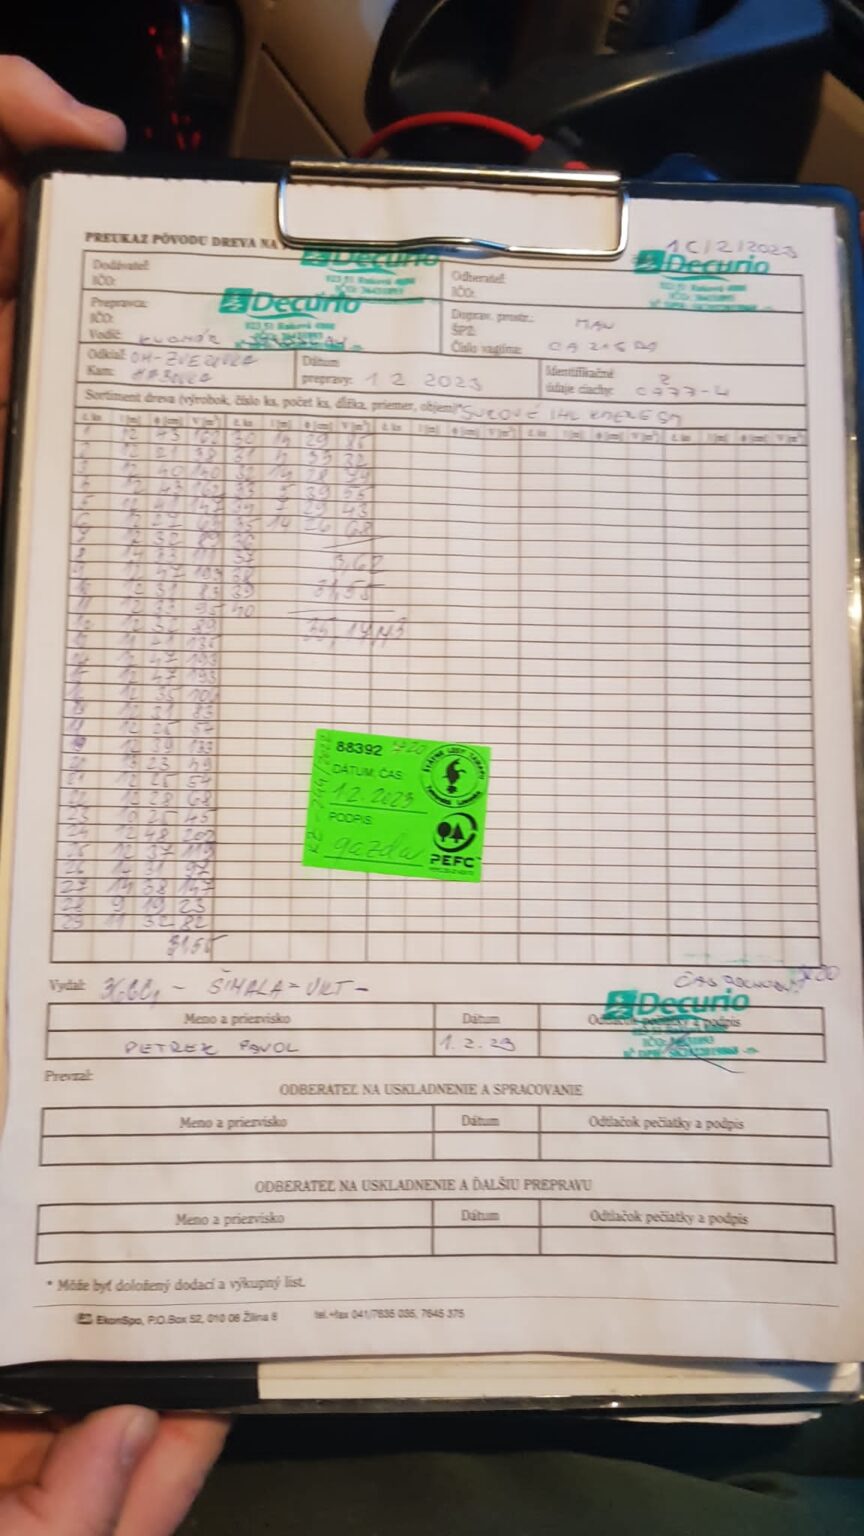 PREUKAZ PÔVODU DREVA NA
1C/2/2023
Dodávateľ:
IČO:
Decurio
023 51 Raková
Odberateľ:
IČO:
Decurio
Prepravca:
IČO:
Vodič:
Decurio
023 51 Raková
Doprav. prostr.: MAN
ŠPZ:
Číslo vagóna:
Odkiaľ: OH-ZVEROVKA
Kam: HABOVKA
Dátum
prepravy: 1 2 2023
Identifikačné
údaje ciachy: C777-4
Sortiment dreva (výrobok, číslo ks, počet ks, dĺžka, priemer, objem)* SUROVÉ IHL
č. ks l [m] φ [cm] V [m³] č. ks l [m] φ [cm] V [m³] č. ks l [m] φ [cm] V [m³] č. ks l [m] φ [cm] V [m³] č. ks l [m] φ [cm] V [m³]
1 12 43 162 30 14 29 85
2 12 21 38 31
3 12 40 140 32 14 28
4 12 43 162 33 5 39 55
5 12 41 147 34 7 29 43
6 12 27 63 35 14 26 68
7 12 32 89 36
8 14 33 111 37
3,62
9 12 47 193 38
10 12 31 83 39
31,55
11 12 33 95 40
12 12 32 89
35,17
13 11 41 135
14 12 47 193
15 12 47 193
16 12 35 104
17 12 31 83
18 12 26 57
19 12 39 133
20 13 23 49
21 12 25 54
22 12 28 68
23 10 25 45
24 12 48 202
25 12 37 119
26 31 92
27 14 38 147
28 9 19 23
29 11 32 82
31,55
88392 720
DÁTUM, ČAS:
1.2.2023
PODPIS:
gazda
ŠTÁTNE LESY TANAPU
TATRANSKÁ LOMNICA
PEFC
ČAS
Vydal:
Meno a priezvisko Dátum Odtlačok pečiatky a podpis
Decurio
PETREK PAVOL 1.2.23
Prevzal:
ODBERATEĽ NA USKLADNENIE A SPRACOVANIE
Meno a priezvisko Dátum Odtlačok pečiatky a podpis
ODBERATEĽ NA USKLADNENIE A ĎALŠIU PREPRAVU
Meno a priezvisko Dátum Odtlačok pečiatky a podpis
* Môže byť doložený dodací a výkupný list.
EkonSpo, P.O.Box 52, 010 08 Žilina 8 tel.+fax 041/7635 035, 7645 375